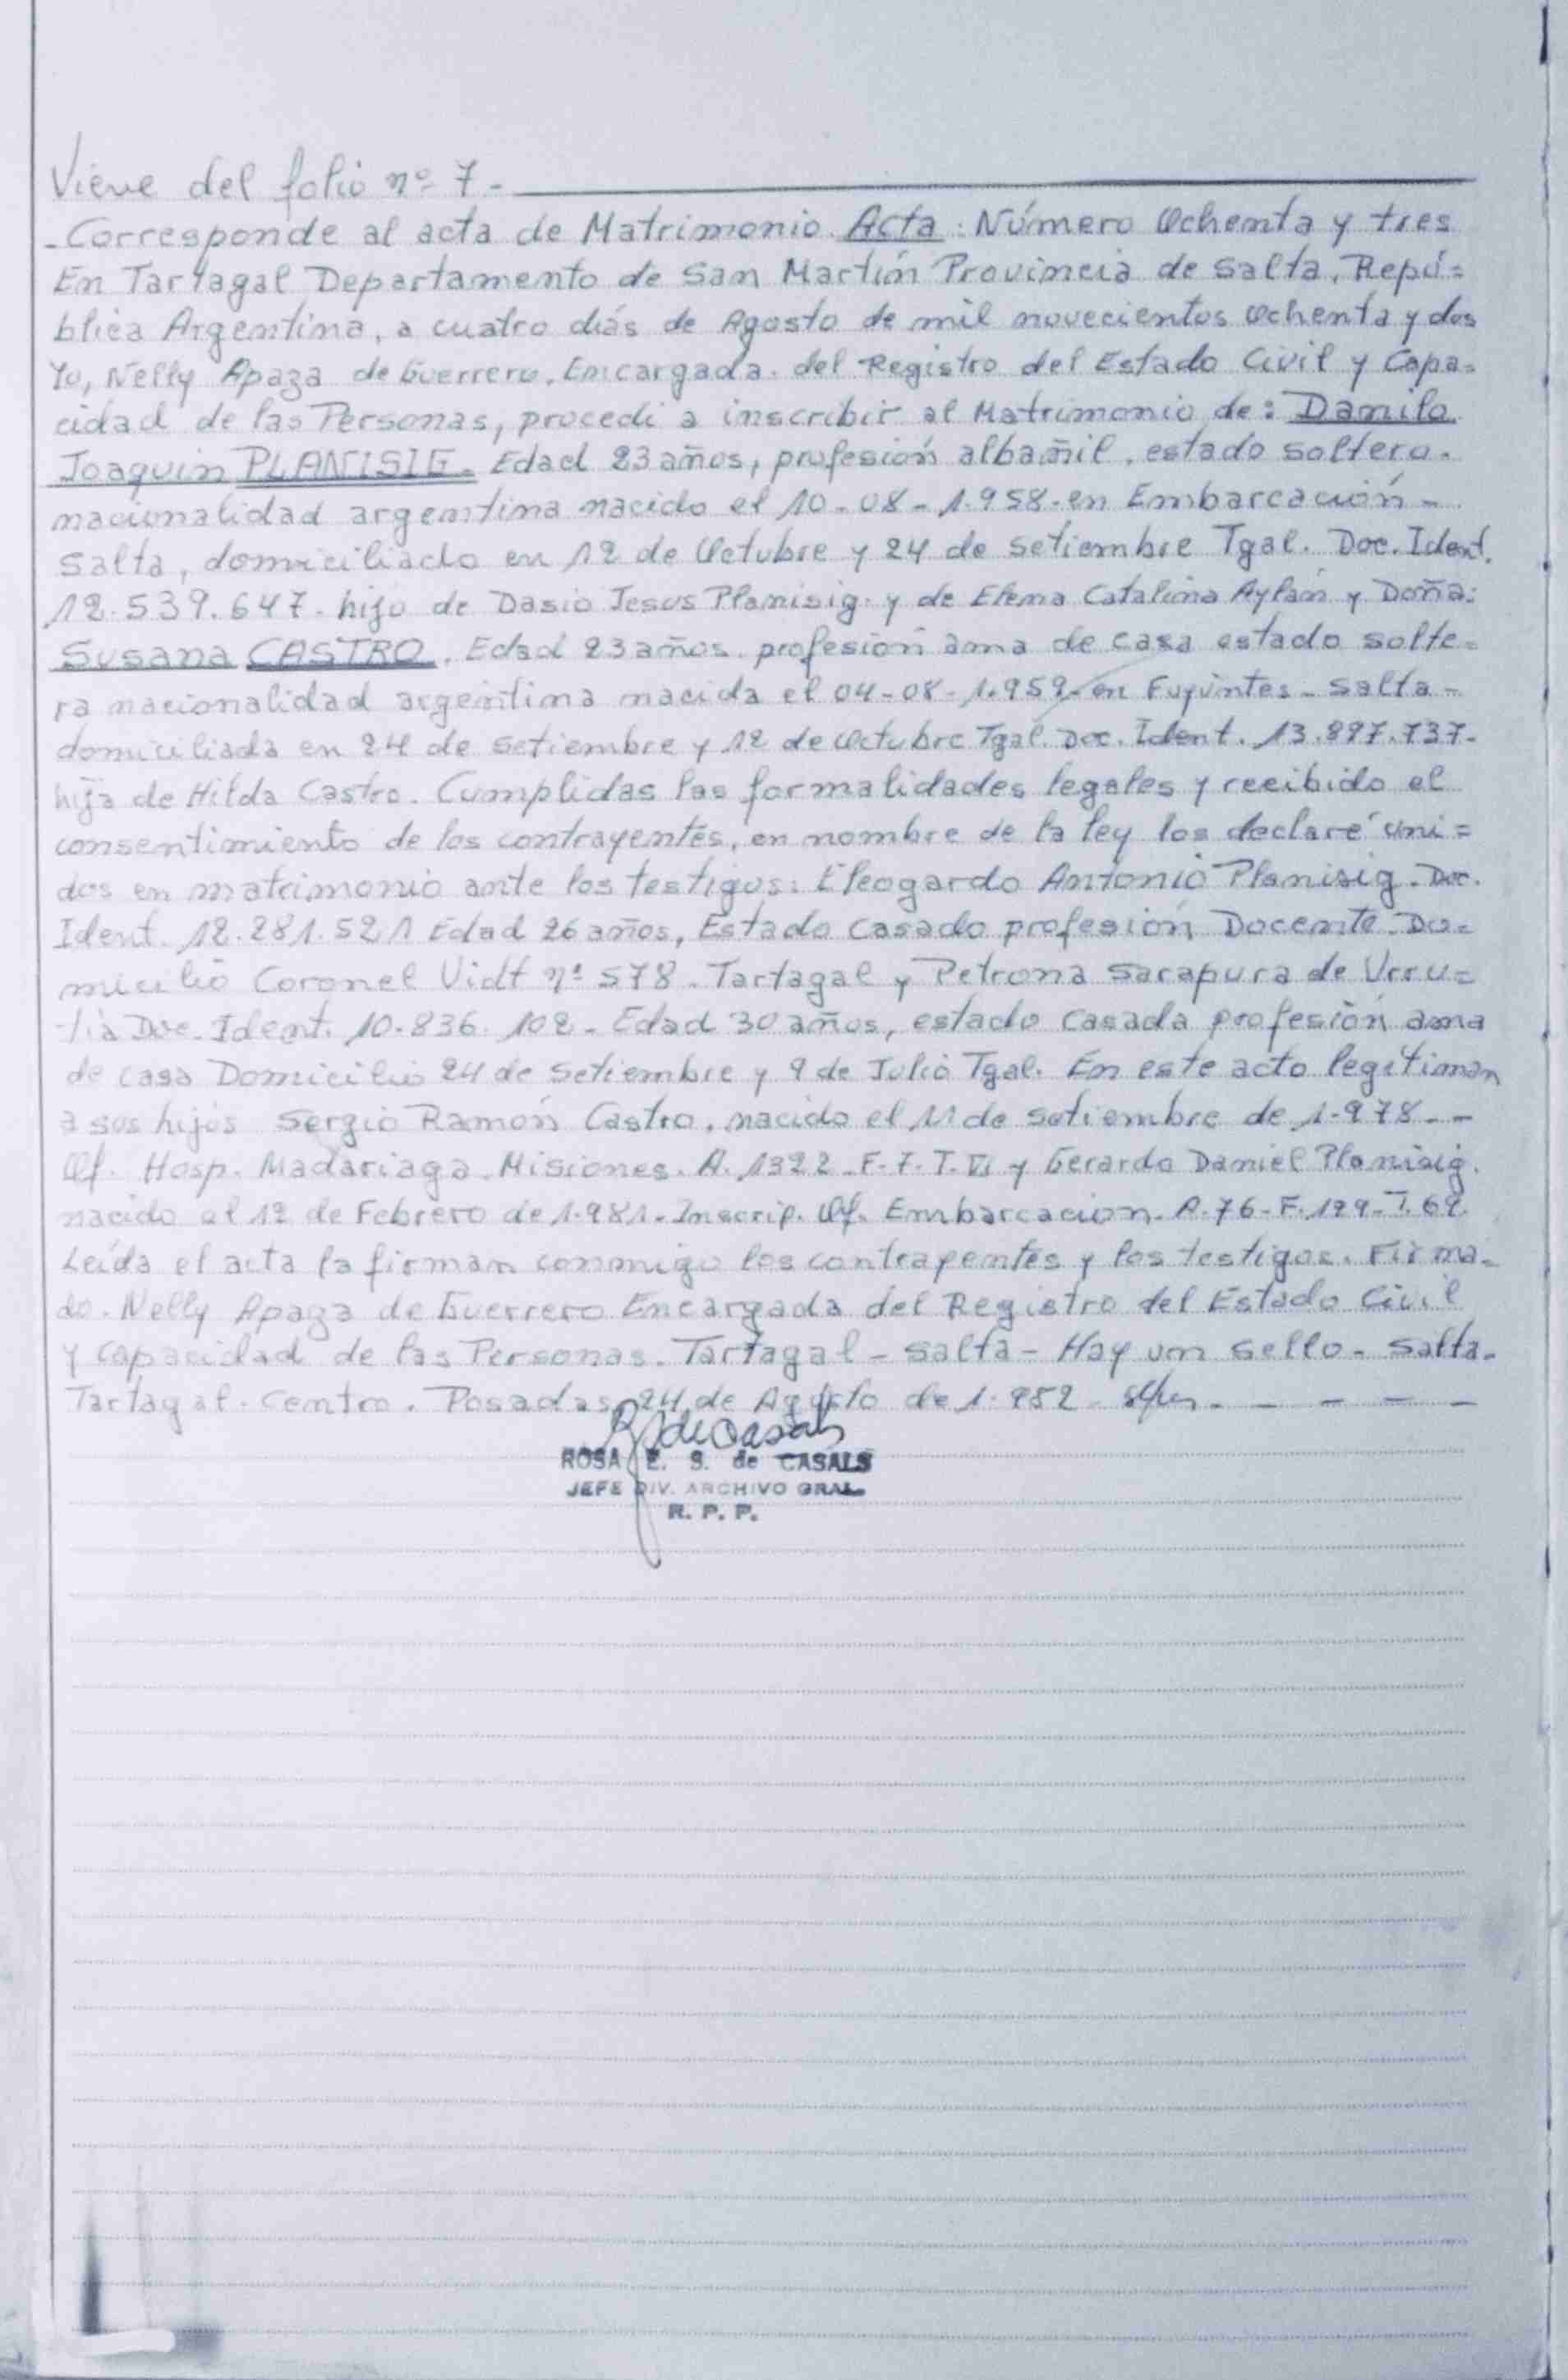 Viene del folio nº 7.-
-Corresponde al acta de Matrimonio. Acta: Número Ochenta y tres
En Tartagal Departamento de San Martín Provincia de Salta, Repú=
blica Argentina, a cuatro días de Agosto de mil novecientos ochenta y dos
Yo, Nelly Apaza de Guerrero. Encargada. del Registro del Estado Civil y Capa=
cidad de las Personas, procedi a inscribir al Matrimonio de: Danilo
Joaquin PLANISIG. Edad 23 años, profesión albañil, estado soltero.
nacionalidad argentina nacido el 10-08-1.958-en Embarcación-
Salta, domiciliado en 12 de Octubre y 24 de Setiembre Tgal. Doc. Ident.
12.539.647. hijo de Dasio Jesus Planisig. y de Elena Catalina Aylán y Doña:
Susana CASTRO. Edad 23 años. profesión ama de casa estado solte=
ra nacionalidad argentina nacida el 04-08-1.959-en - Salta -
domiciliada en 24 de Setiembre y 12 de Octubre Tgal. Doc. Ident. 13.897.737-
hija de Hilda Castro. Cumplidas las formalidades legales y recibido el
consentimiento de los contrayentes, en nombre de la ley los declaré uni=
dos en matrimonio ante los testigos: Eleogardo Antonio Planisig. Doc.
Ident. 12.281.521 Edad 26 años, Estado Casado profesión Docente. Do=
micilio Coronel Vidt nº 578. Tartagal y Petrona Sarapura de Urru=
tia Doc. Ident. 10.836.102. Edad 30 años, estado Casada profesión ama
de casa Domicilio 24 de Setiembre y 9 de Julio Tgal. En este acto legitiman
a sus hijos Sergio Ramón Castro, nacido el 11 de Setiembre de 1.978.--
Of. Hosp. Madariaga. Misiones. A. 1322-F.7.T.VI y Gerardo Daniel Planisig.
nacido el 12 de Febrero de 1.981. Inscrip. Of. Embarcacion. A.76-F.129-T.69.
Leída el acta la firman conmigo los contrayentes y los testigos. Firma-
do. Nelly Apaza de Guerrero Encargada del Registro del Estado Civil
y Capacidad de las Personas. Tartagal - Salta - Hay un Sello - Salta-
Tartagal - Centro. Posadas, 24 de Agosto de 1.982. - - - -
ROSA E. S. de CASALS
JEFE DIV. ARCHIVO GRAL
R. P. P.